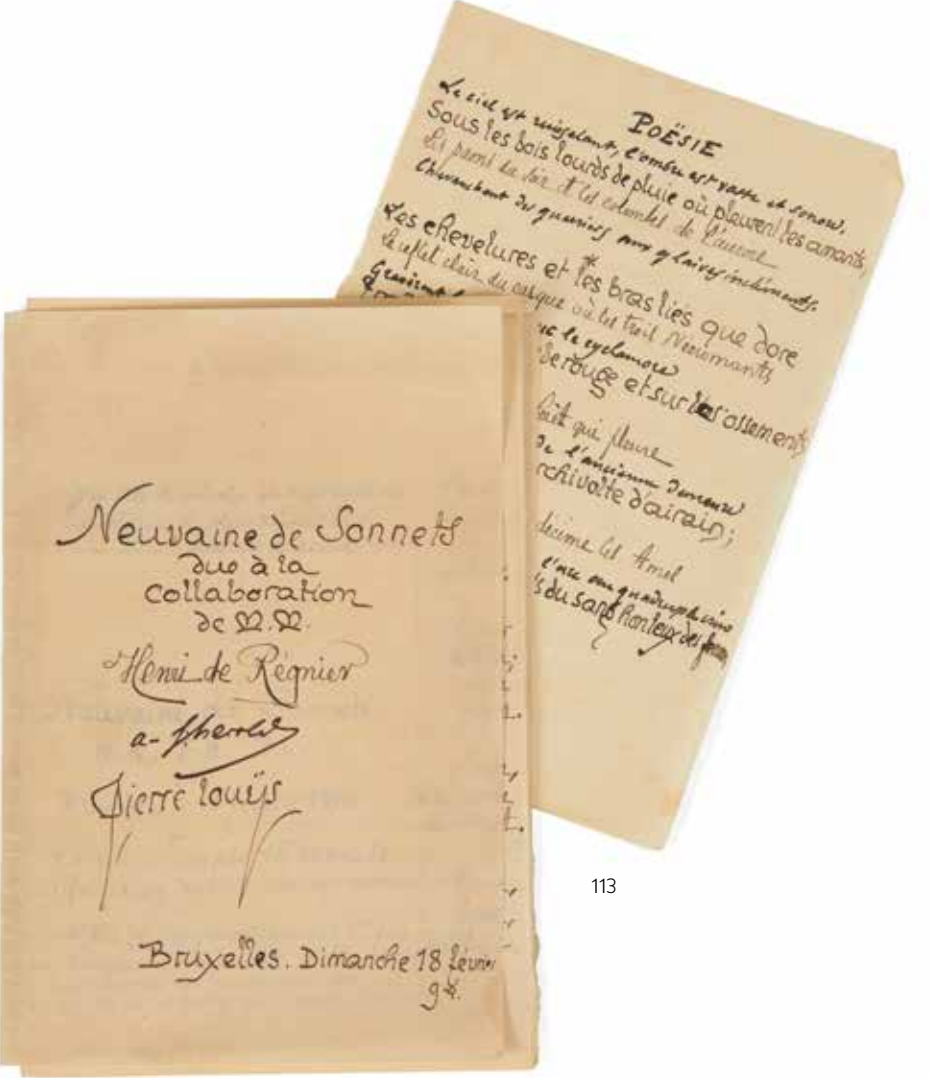 POËSIE
Le ciel est ruisselant, l'ombre est vaste et sonore.
Sous les bois lourds de pluie où pleurent les amants,
Les paons du soir et les colombes de l'aurore
Chevauchent des guerriers aux glaives incléments.
Les chevelures et les bras liés que dore
Le reflet clair du casque où les trois Nécromants
Gravirent
le cyclamore
rouge et sur les ossements
qui pleure
de l'ancienne demeure
rchivolte d'airain;
décime les Amel
l'arc au quadruple
du sang honteux des
Neuvaine de Sonnets
due à la
collaboration
de M.M.
Henri de Régnier
a-f. herold
Pierre Louÿs
Bruxelles. Dimanche 18 février
94.
113